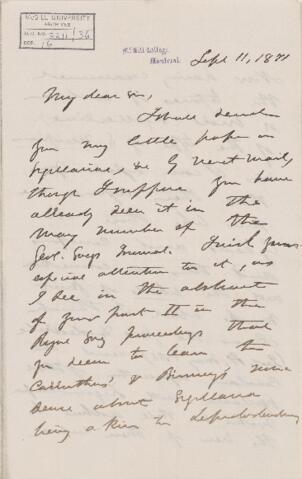 McGILL UNIVERSITY
ARCHIVES
ACC. NO. 2211/36
REF. 16
McGill College,
Montreal.
Sept 11, 1871
My dear Sir,
I shall send
you my little paper on
Sigillariae, &c by next mail,
though I suppose you have
already seen it in the
May number of the
Geol. Socys Journal. I wish your
especial attention to it, as
I see in the abstract
of your part II in the
Royal Soc Proceedings that
you seem to lean to
Carruthers' & Binney's
about Sigillaria
being akin to Lepidodendron